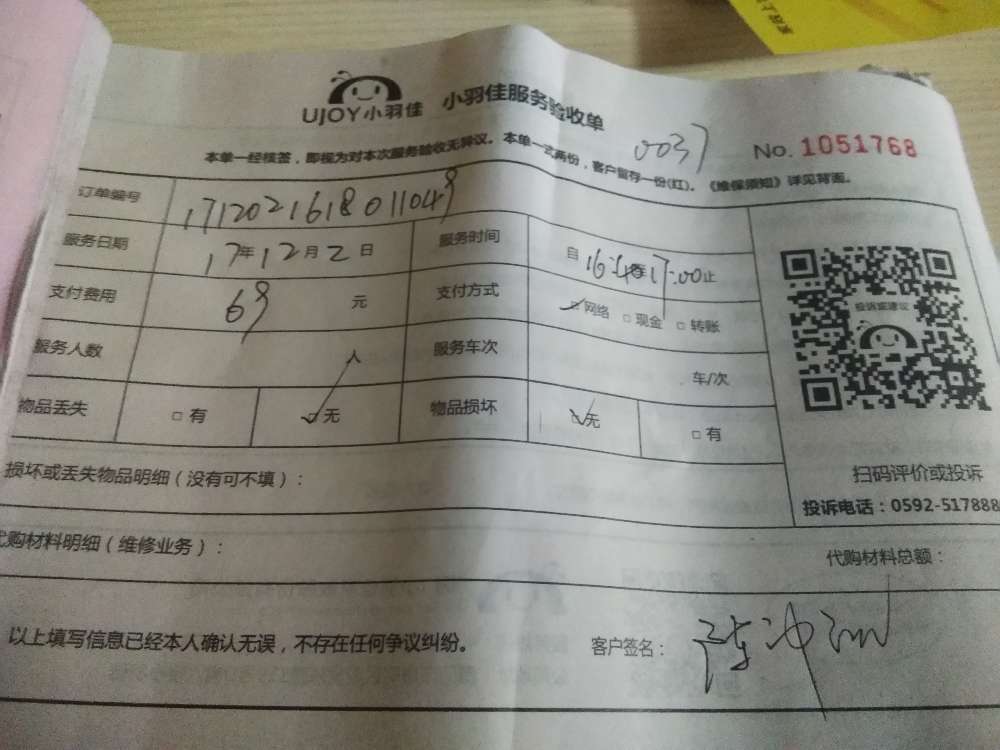 UJOY小羽佳 小羽佳服务验收单
0037
No. 1051768
本单一经核签，即视为对本次服务验收无异议。本单一式两份，客户留存一份(红)。《维保须知》详见背面。
订单编号 1712021618011049
服务日期 17年12月2日 服务时间 自16: 17:00止
支付费用 69元 支付方式 □网络 □现金 □转账
服务人数 人 服务车次 车/次
物品丢失 □有 □无 物品损坏 □无 □有
投诉或建议
扫码评价或投诉
投诉电话：0592-517888
损坏或丢失物品明细（没有可不填）：
代购材料明细（维修业务）：
代购材料总额：
以上填写信息已经本人确认无误，不存在任何争议纠纷。 客户签名：